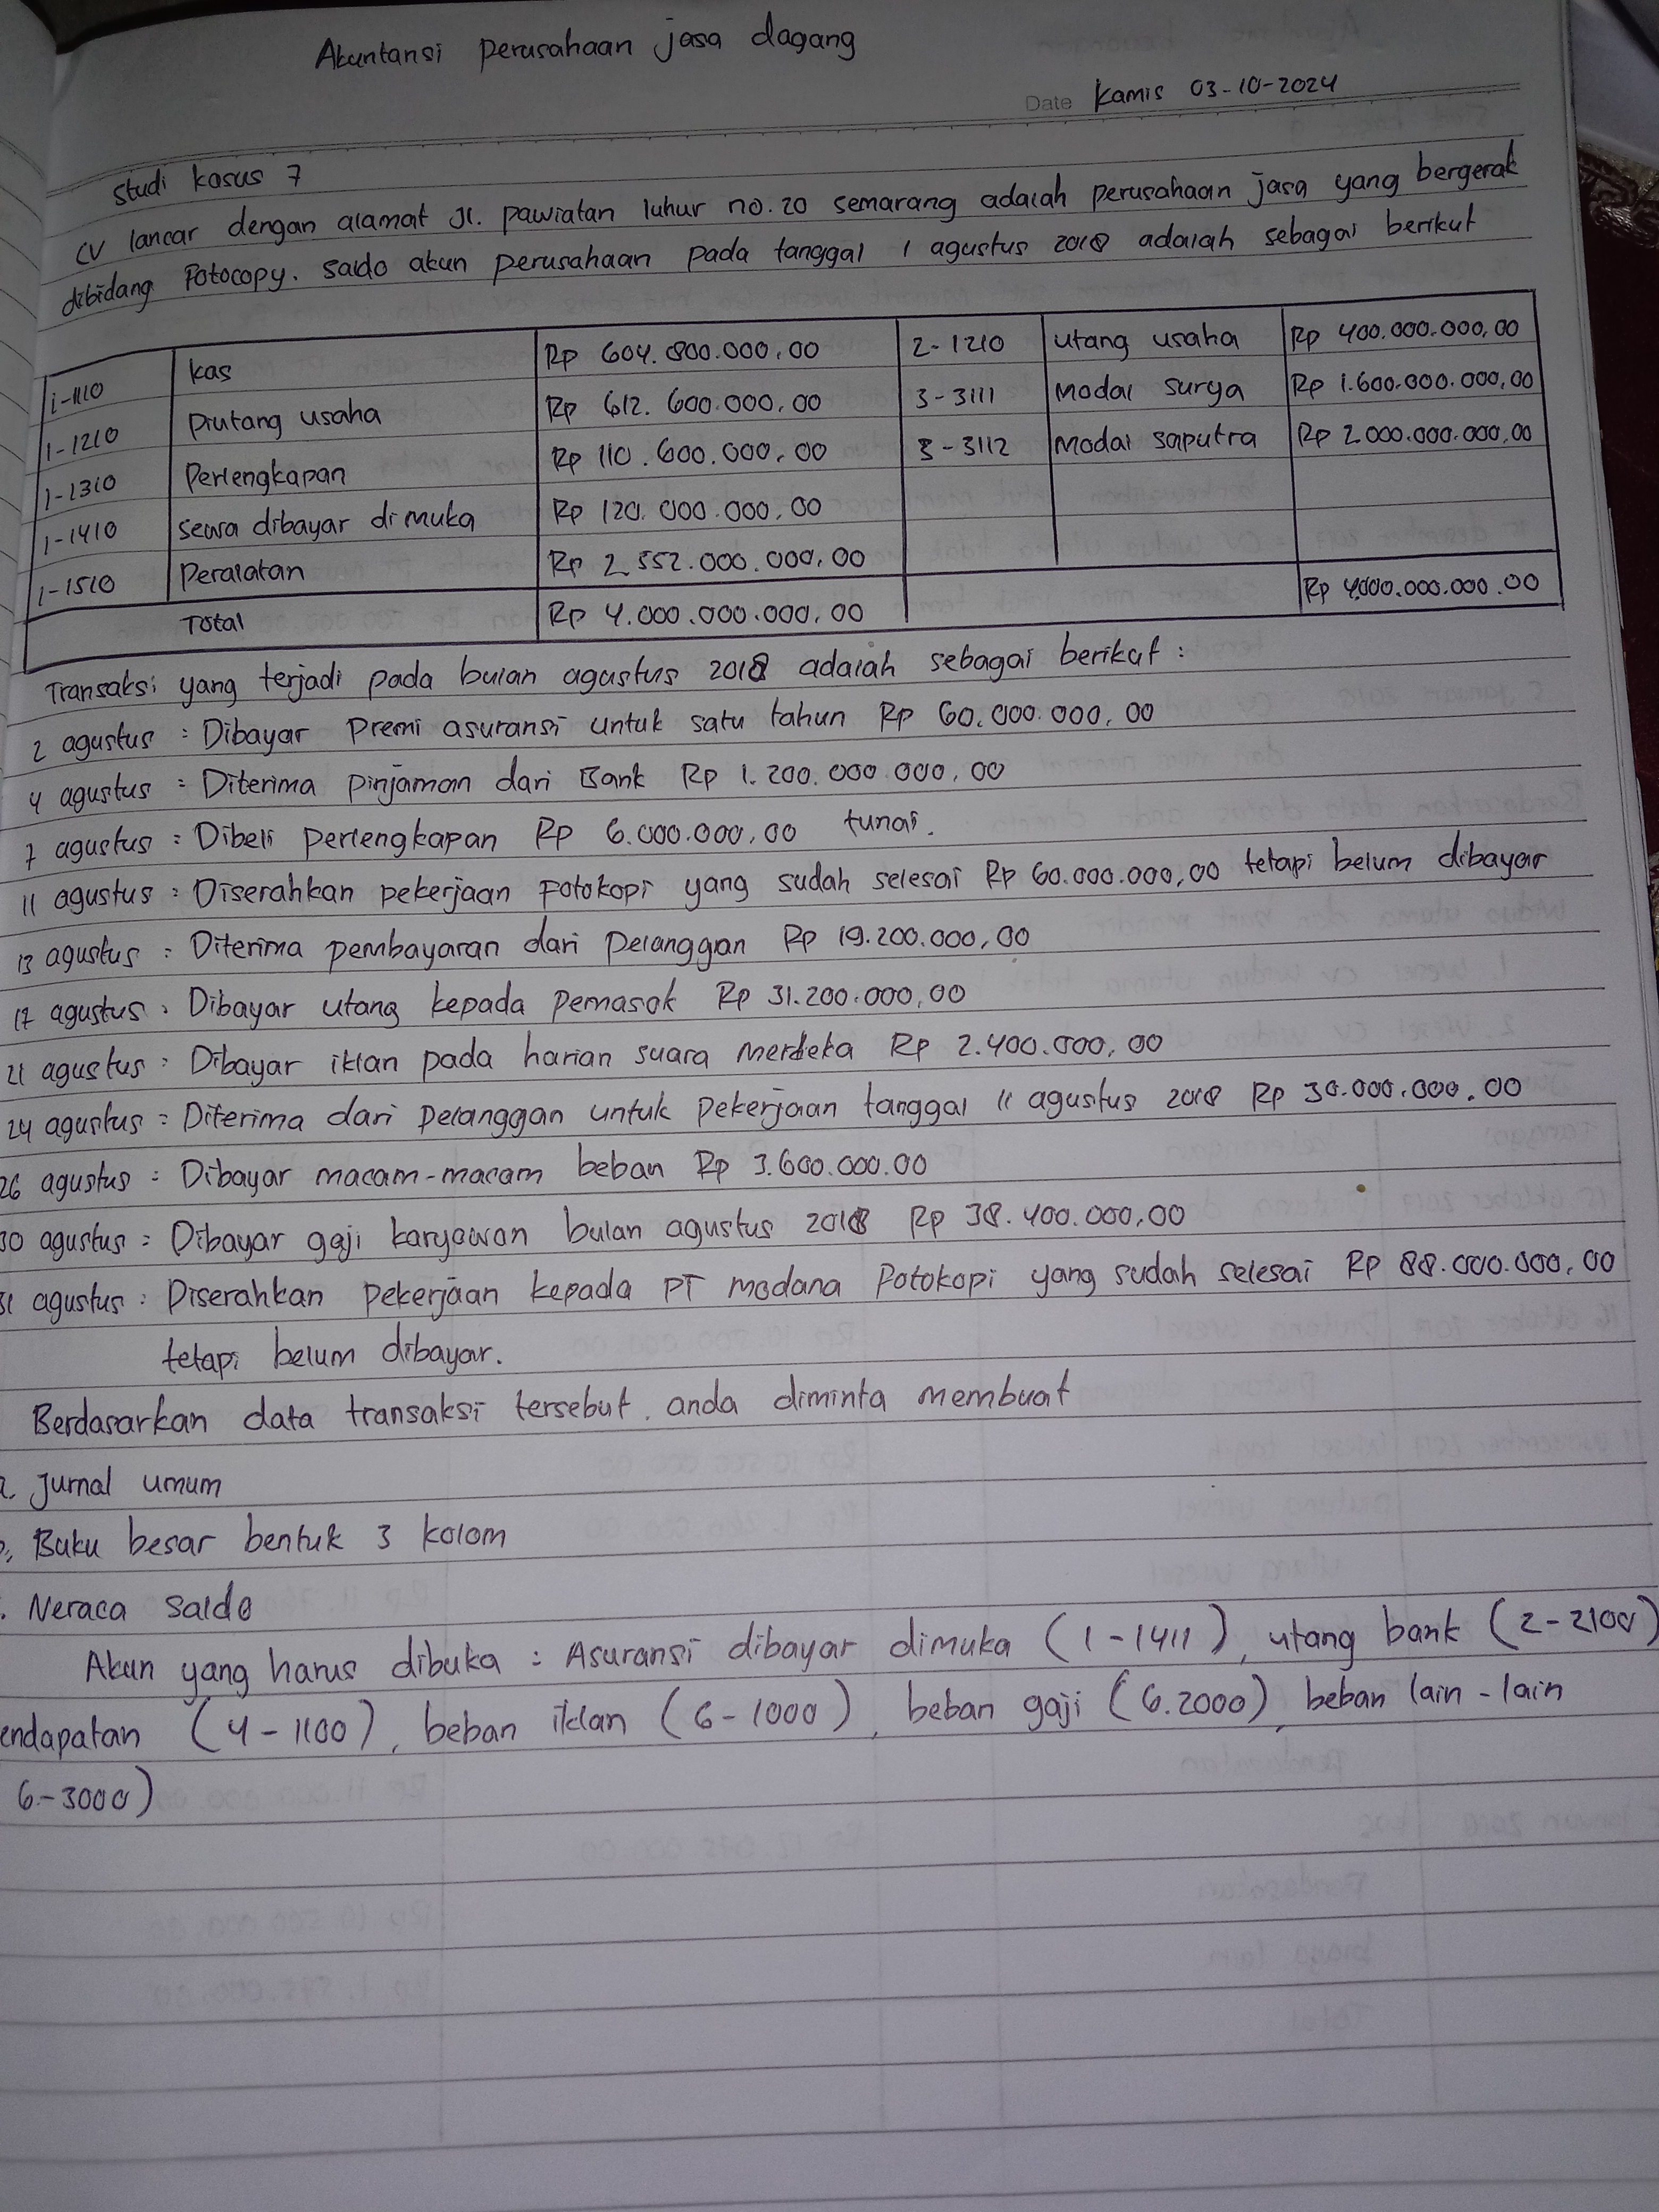 Akuntansi perusahaan jasa dagang
Date Kamis 03-10-2024
Studi kasus 7
CV lancar dengan alamat Jl. pawiatan luhur no.20 semarang adalah perusahaan jasa yang bergerak
dibidang Fotocopy. saldo akun perusahaan pada tanggal 1 agustus 2018 adalah sebagai berikut
1-1110 kas Rp 604.800.000,00 2-1210 utang usaha Rp 400.000.000,00
1-1210 Piutang usaha Rp 612.600.000,00 3-3111 Modal surya Rp 1.600.000.000,00
1-1310 Perlengkapan Rp 110.600.000,00 3-3112 Modal saputra Rp 2.000.000.000,00
1-1410 sewa dibayar dimuka Rp 120.000.000,00
1-1510 Peralatan Rp 2.552.000.000,00
Total Rp 4.000.000.000,00 Rp 4.000.000.000.00
Transaksi yang terjadi pada bulan agustus 2018 adalah sebagai berikut :
2 agustus : Dibayar Premi asuransi untuk satu tahun Rp 60.000.000,00
4 agustus : Diterima pinjaman dari Bank Rp 1.200.000.000,00
7 agustus : Dibeli perlengkapan Rp 6.000.000,00 tunai.
11 agustus : Diserahkan pekerjaan Fotokopi yang sudah selesai Rp 60.000.000,00 tetapi belum dibayar
13 agustus : Diterima pembayaran dari pelanggan Rp 19.200.000,00
17 agustus : Dibayar utang kepada pemasok Rp 31.200.000,00
21 agustus : Dibayar iklan pada harian suara merdeka Rp 2.400.000,00
24 agustus : Diterima dari pelanggan untuk pekerjaan tanggal 11 agustus 2018 Rp 30.000.000.00
26 agustus : Dibayar macam-macam beban Rp 3.600.000.00
30 agustus : Dibayar gaji karyawan bulan agustus 2018 Rp 38.400.000,00
31 agustus : Diserahkan pekerjaan kepada PT madana Fotokopi yang sudah selesai Rp 88.000.000,00
tetapi belum dibayar.
Berdasarkan data transaksi tersebut. anda diminta membuat
a. Jurnal umum
b. Buku besar bentuk 3 kolom
. Neraca saldo
Akun yang harus dibuka : Asuransi dibayar dimuka (1-1411), utang bank (2-2100)
endapatan (4-1100), beban iklan (6-1000), beban gaji (6.2000), beban lain-lain
6-3000)